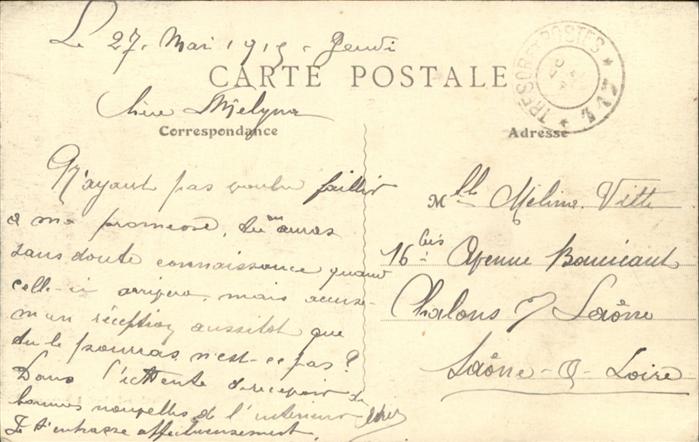 Le 27 Mai 1915 - Jeudi
CARTE POSTALE
TRESOR ET POSTES
Chère Mélyna
Correspondance
Adresse
N'ayant pas voulu faillir
a ma promesse, tu m'auras
sans doute connaissance quand
celle-ci arrivera, mais accuse-
m'en réception aussitot que
du le pourras n'est-ce pas?
Dans l'attente de recevoir de
bonnes nouvelles de l'interieur
Je t'embrasse affectueusement.
Mlle Méline Vitte
16 bis Avenue Boucicaut
Chalons s/ Saône
Saône-&-Loire